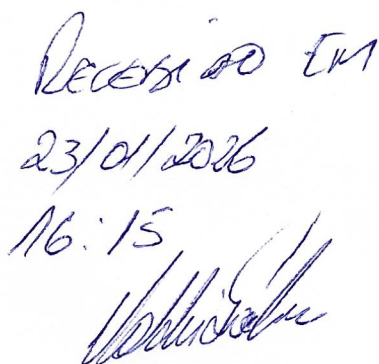 RECEBIDO EM
23/01/2026
16:15